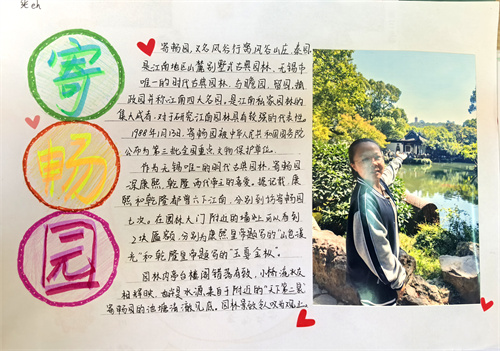 寄
畅
园
寄畅园，又名风谷行窝风谷山庄，秦园
是江南地区山麓别墅式古典园林，无锡市
唯一的明代古典园林，与瞻园、留园、拙
政园并称江南四大名园，是江南私家园林的
集大成者，对于研究江南园林具有较强的代表性。
1988年1月13日，寄畅园被中华人民共和国国务院
公布为第三批全国重点文物保护单位。
作为无锡唯一的明代古典园林，寄畅园
深康熙、乾隆两代帝王的喜爱。据记载，康
熙和乾隆都曾六下江南，分别到访寄畅园
七次。在园林大门附近的墙上可以看到
2块匾额，分别为康熙皇帝题写的“山色溪
光”和乾隆皇帝题写的“玉戛金枞”。
园林内亭台楼阁错落有致，小桥流水交
相辉映，水源来自于附近的“天下第二泉”
寄畅园的池塘清澈见底。园林景致令人叹为观止